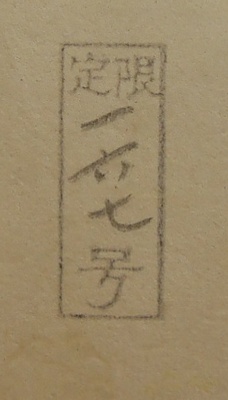 限定
一六七
号